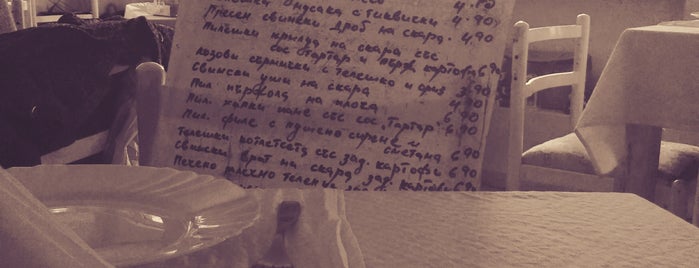 с тиквички 4.80
Пресен свински дроб на скара. 4,90
Пилешки крилца на скара със
сос тартар и първ. картофи 6,90
Лозови сърмички с телешко и ориз
Свински уши на скара 3.90
Пил. пържола на плоча 4,90
Пил. хапки пане със сос. Тартар. 6.90
Пил. филе с пушено сирене и
сметана 6.90
Телешки котлетчета със зад. картофи 6.90
Свински врат на скара зад. картофи 6.90
Печено млечно телешко